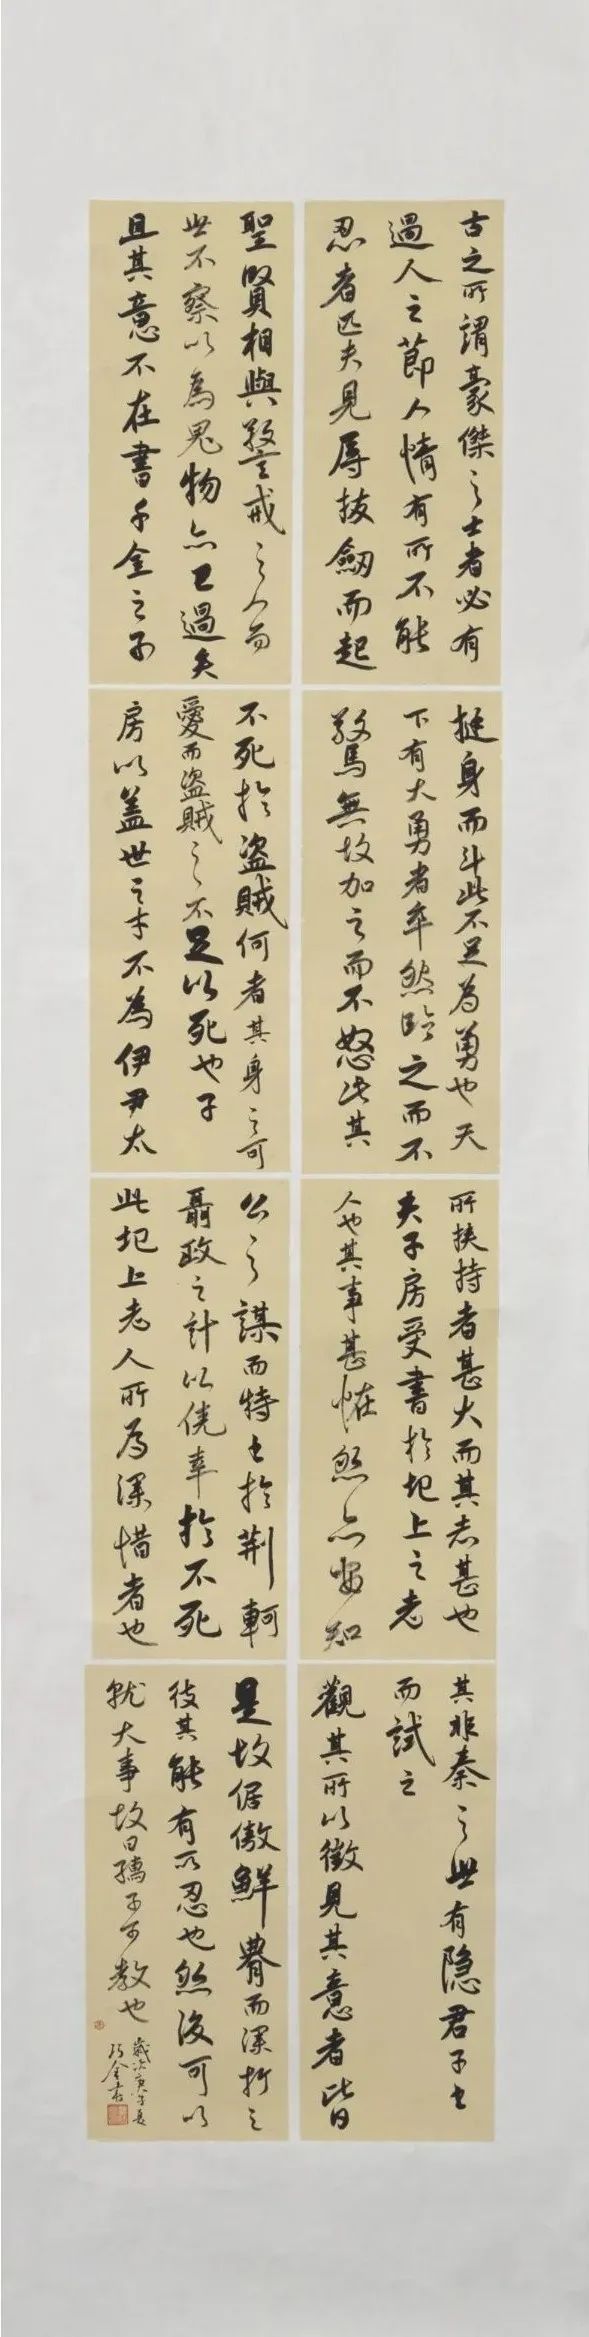 古之所謂豪傑之士者必有
過人之節人情有所不能
忍者匹夫見辱拔劍而起
挺身而斗此不足為勇也天
下有大勇者卒然臨之而不
驚無故加之而不怒此其
所挾持者甚大而其志甚也
夫子房受書於圯上之老
人也其事甚怪然亦安知
其非秦之世有隐君子士
而試之
觀其所以微見其意者皆
聖賢相與警戒之人而
世不察以為鬼物亦已過矣
且其意不在書千金之子
不死於盜賊何者其身之可
愛而盜賊之不足以死也子
房以盖世之才不為伊尹太
公之謀而特出於荆軻
聶政之計以僥幸於不死
此圯上老人所為深惜者也
是故倨傲鮮腆而深折之
彼其能有所忍也然後可以
就大事故曰孺子可教也
歲次庚子夏